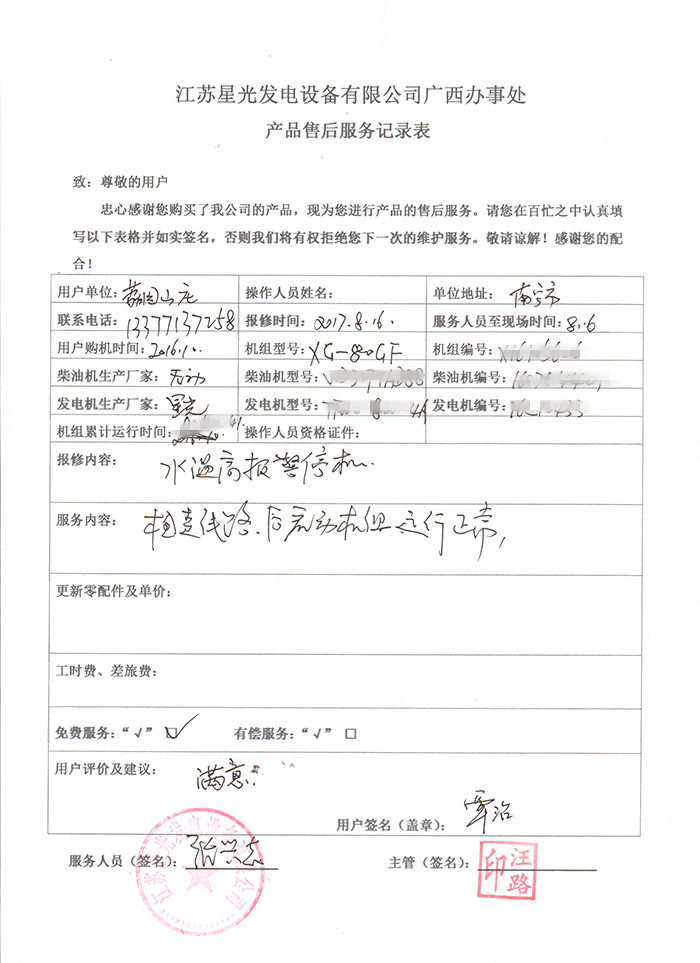 江苏星光发电设备有限公司广西办事处
产品售后服务记录表
致：尊敬的用户
忠心感谢您购买了我公司的产品，现为您进行产品的售后服务。请您在百忙之中认真填
写以下表格并如实签名，否则我们将有权拒绝您下一次的维护服务。敬请谅解！感谢您的配
合！
用户单位：荔园山庄 操作人员姓名： 单位地址：南宁市
联系电话：13377137258 报修时间：2017.8.16. 服务人员至现场时间：8.16
用户购机时间：2016.10. 机组型号：XG-80GF 机组编号：
柴油机生产厂家： 柴油机型号： 柴油机编号：
发电机生产厂家：星光 发电机型号： 发电机编号：
机组累计运行时间： 操作人员资格证件：
报修内容：水温高报警停机.
服务内容：检查线路.后启动机组运行正常,
更新零配件及单价：
工时费、差旅费：
免费服务：“√” ☑ 有偿服务：“√” □
用户评价及建议：满意.
用户签名（盖章）：覃治
服务人员（签名）：张兴志 主管（签名）：汪路印